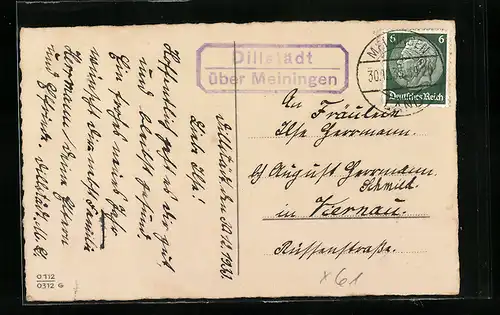 Dillstädt
über Meiningen
6 6
Deutsches Reich
30.
Dillstädt, den
Liebe Ilse!
Hoffentlich geht es Dir gut
und bleibst gesund.
Ein frohes neues Jahr
wünscht Dir nebst Familie
Hermann, Deine Eltern
und Dillstädt,
An
Fräulein
Ilse Herrmann.
b/ August Herrmann
Schmied.
in Viernau.
Russenstraße.
x 61
0112
0312 G